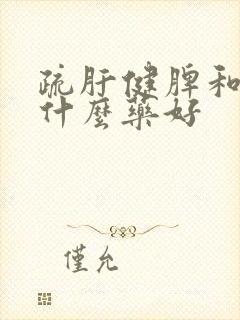 疏肝健脾和
什麼藥好
僅允